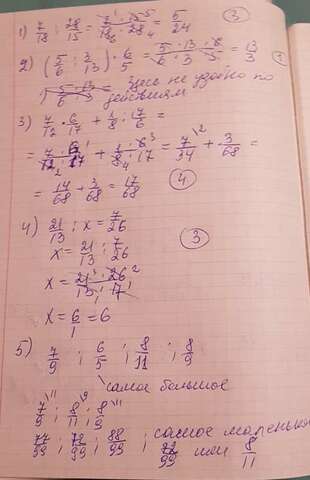 1) 7/18 : 28/15 = 7 · 15 5 / 18 6 · 28 4 = 5/24 (3)
2) (5/6 : 3/13) · 6/5 = 5 · 13 · 6 / 6 · 3 · 5 = 13/3
1) 5 · 13 / 6 · 3 = Здесь не удобно по
действиям
3) 7/12 · 6/17 + 1/8 : 17/6 =
= 7 · 6 1 / 12 2 · 17 + 1 · 6 3 / 8 4 · 17 = 7/34 \2 + 3/68 =
= 14/68 + 3/68 = 17/68 (4)
4) 21/13 : x = 7/26 (3)
x = 21/13 : 7/26
x = 21 3 · 26 2 / 13 1 · 7 1
x = 6/1 = 6
5) 7/9 ; 6/5 ; 8/11 ; 8/9
самое большое
7/9 \11 ; 8/11 \9 ; 8/9 \11
77/99 ; 72/99 ; 88/99 ; самое маленько
72/99 или 8/11